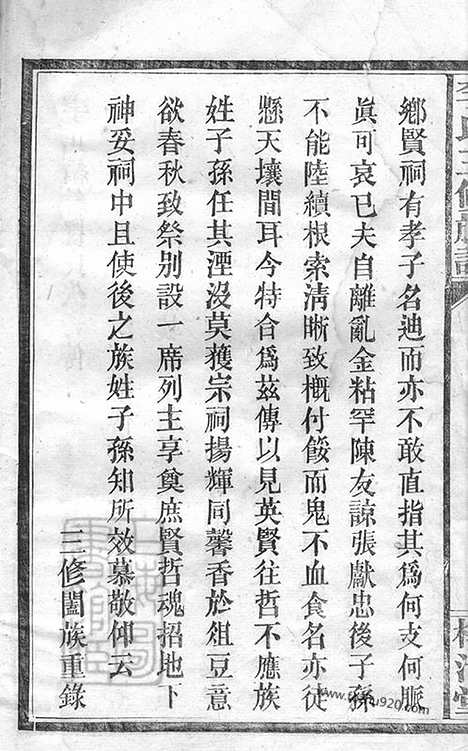 鄉賢祠有孝子名迪而亦不敢直指其爲何支何脈
眞可哀已夫自離亂金粘罕陳友諒張獻忠後子孫
不能陸續根索清晰致概付餒而鬼不血食名亦徒
懸天壤間耳今特合爲茲傳以見英賢往哲不應族
姓子孫任其湮沒莫獲宗祠揚輝同馨香於俎豆意
欲春秋致祭别設一席列主享奠庶賢哲魂招地下
神妥祠中且使後之族姓子孫知所效慕敬仰云
三修闔族重錄